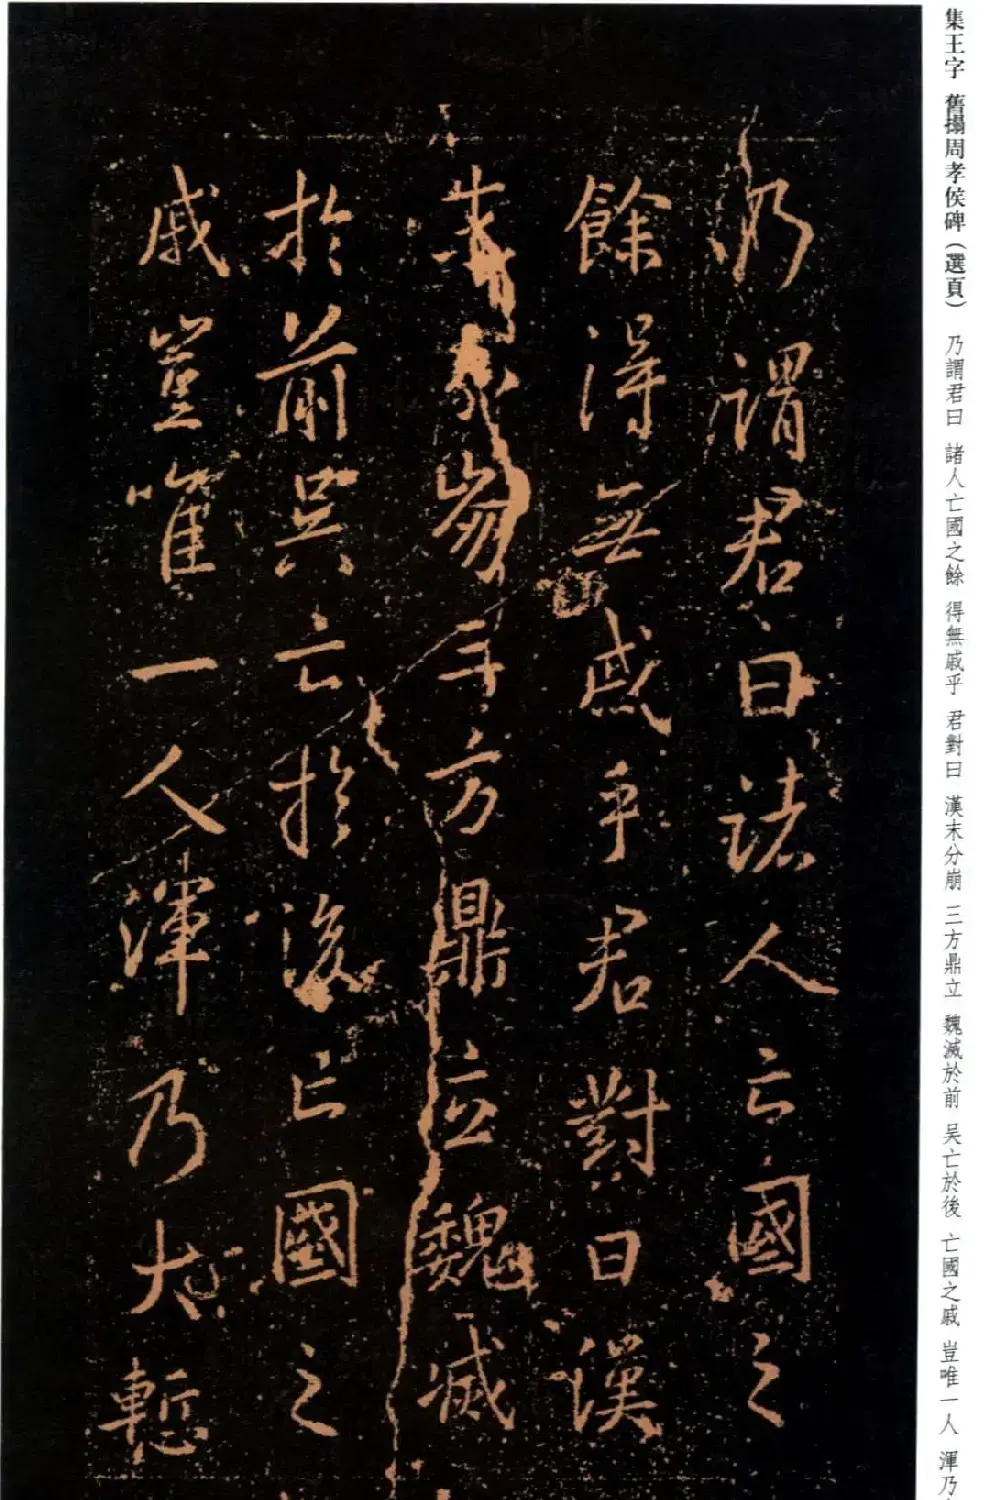 集王字 舊搨周孝侯碑(選頁) 乃謂君曰 諸人亡國之餘 得無戚乎 君對曰 漢末分崩 三方鼎立 魏滅於前 吴亡於後 亡國之戚 豈唯一人 渾乃
乃謂君曰諸人亡國之
餘得無戚乎君對曰漢
末分崩三方鼎立魏滅
於前吴亡於後亡國之
戚豈唯一人渾乃大慙